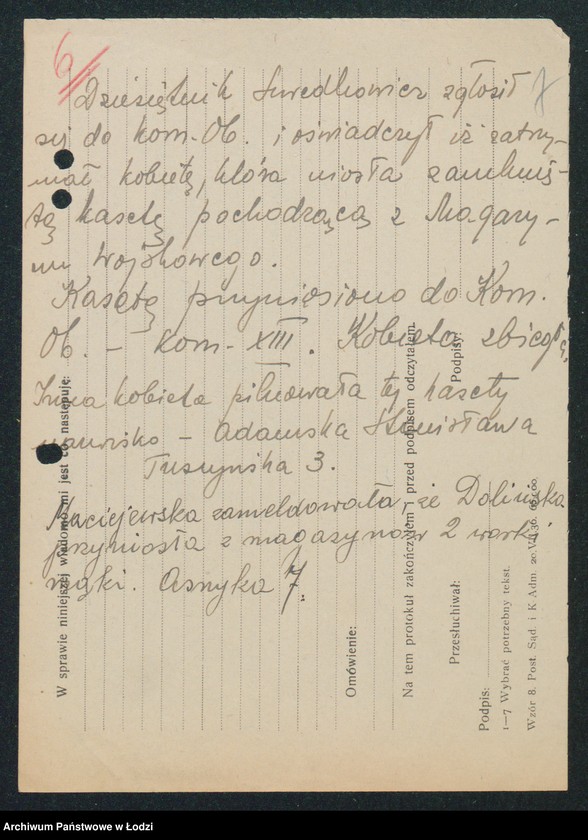 6
7
Dziesiętnik Swedkowicz zgłosił
się do kom. Ob. i oświadczył iż zatrzy-
mał kobietę, która niosła zamknię-
tą kasetę pochodzącą z Magazy-
nu Wojskowego.
Kasetę przyniesiono do Kom.
Ob. – kom – XIII. Kobieta zbiegła.
Inna kobieta pilnowała tej kasety
nazwisko – Adamska Stanisława
Tuszyńska 3.
Maciejewska zameldowała, że Dolińska
przyniosła z magazynów 2 worki
mąki. Asnyka 7.
W sprawie niniejszej wiadomo mi jest co następuje:
Omówienie:
Na tem protokuł zakończyłem i przed podpisem odczytałem.
Podpisy:
Przesłuchiwał:
Podpis:
1—7 Wybrać potrzebny tekst.
Wzór 8. Post. Sąd. i K Adm. 20.VII.30.
Archiwum Państwowe w Łodzi